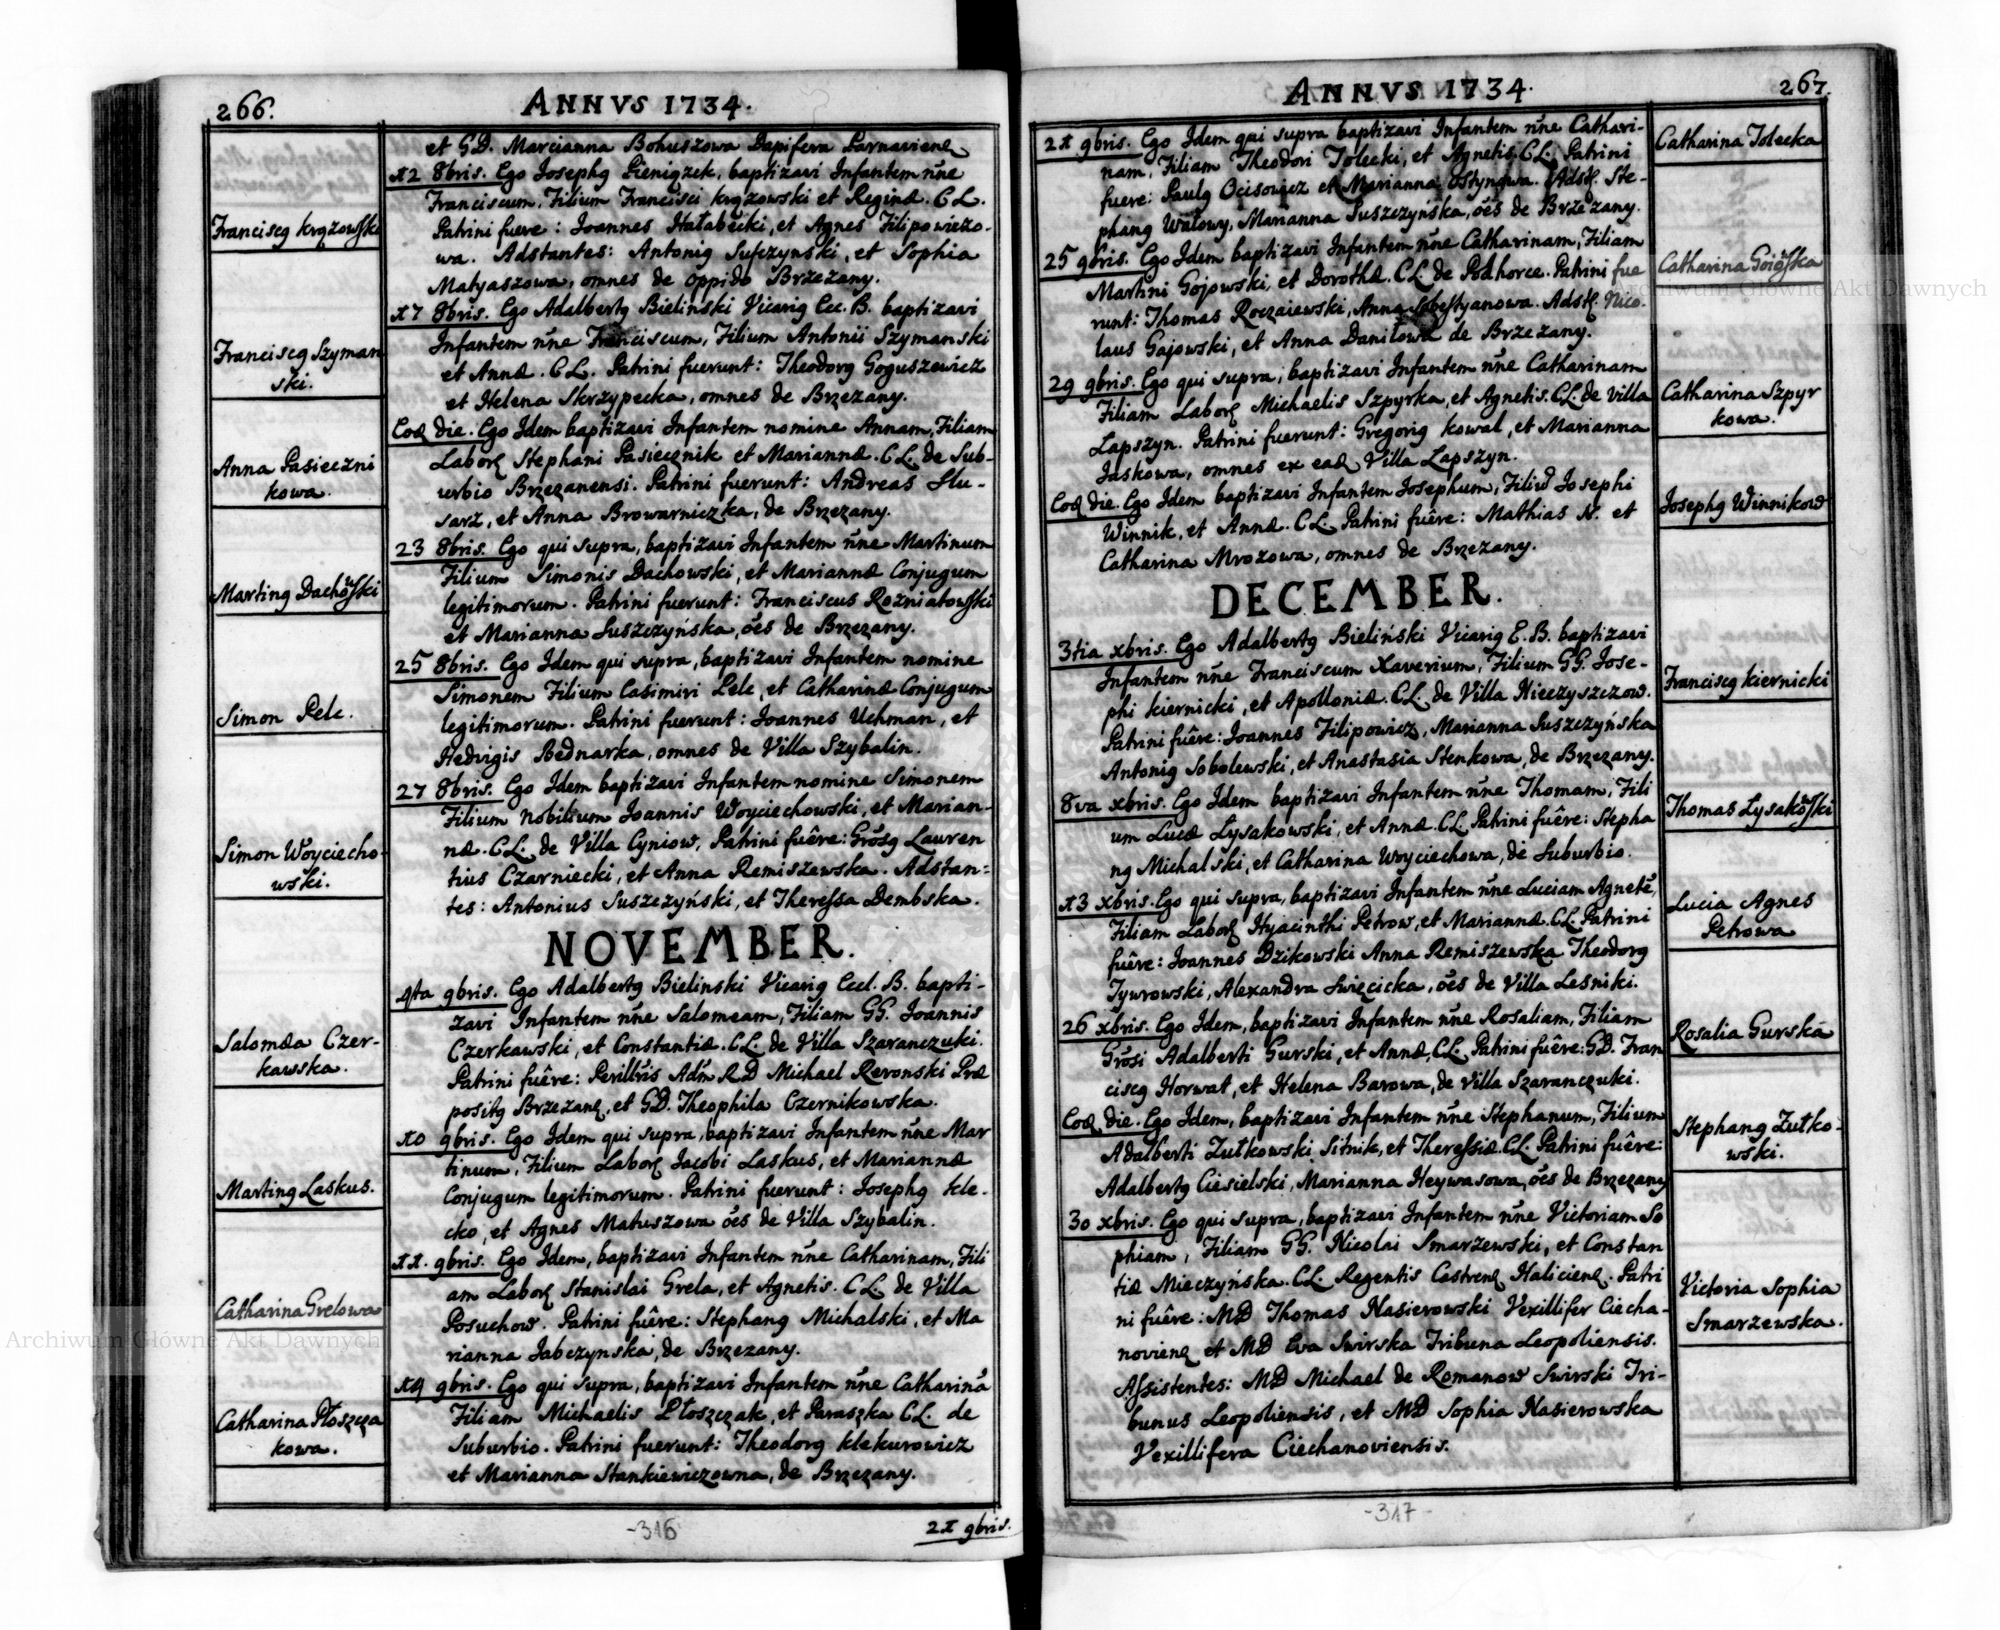 266.
ANNVS 1734.
et GD. Marcianna Bohuszowa Dapifera Parnavienę
Francisცg krązowski
12 8bris. Ego Josephg Pieniązek, baptizavi Infantem nn̄e
Franciscum, Filium Francisci krązowski et Reginæ. C L.
Patrini fuere: Joannes Hałabecki, et Agnes Filipowiczo-
wa. Adstantes: Antonig Susczynski, et Sophia
Matyaszowa, omnes de oppido Brzezany.
Franciscg Szyman
ski.
17 8bris. Ego Adalbertg Bielinski Vicarig Ecc. B. baptizavi
Infantem nn̄e Franciscum, Filium Antonii Szymanski
et Annæ. C L. Patrini fuerunt: Theodorg Goguszewicz
et Helena Skrzypecka, omnes de Brzezany.
Anna Pasieczni
kowa.
Eoд die. Ego Idem baptizavi Infantem nomine Annam, Filiam
Laborę Stephani Pasiecznik et Mariannæ. C L. de Sub-
urbio Brzezanensi. Patrini fuerunt: Andreas Slu-
sarz, et Anna Browarniczka, de Brzezany.
Marting Dachowski
23 8bris. Ego qui supra, baptizavi Infantem nn̄e Martinum
Filium Simonis Dachowski, et Mariannæ Conjugum
legitimorum. Patrini fuerunt: Franciscus Rozniatowski
et Marianna Suszczyńska, oēs de Brzezany.
Simon Pele.
25 8bris. Ego Idem qui supra, baptizavi Infantem nomine
Simonem Filium Casimiri Pele, et Catharinæ Conjugum
legitimorum. Patrini fuerunt: Joannes Uchman, et
Hedvigis Bednarka, omnes de Villa Szybalin.
Simon Woyciecho-
wski.
27 8bris. Ego Idem baptizavi Infantem nomine Simonem
Filium Nobilium Joannis Woyciechowski, et Marian-
næ. C L. de Villa Cyniow, Patrini fuêre: Grōsg Lauren
tius Czarniecki, et Anna Remiszewska. Adstan=
tes: Antonius Suszczyński, et Theressa Dembska.
NOVEMBER.
Salomæa Czer-
kawska.
4ta 9bris. Ego Adalbertg Bielinski Vicarig Eccl. B. bapti-
zavi Infantem nn̄e Salomeam, Filiam GG. Joannis
Czerkawski, et Constantiæ. C L. de Villa Szaranczuki.
Patrini fuêre: Perillrīs Adm̄ RD Michael Revonski Præ
positg Brzezanę, et GD. Theophila Czernikowska.
Marting Laskus.
10 9bris. Ego Idem qui supra, baptizavi Infantem nn̄e Mar
tinum, Filium Laborę Jacobi Laskus, et Mariannæ
Conjugum legitimorum. Patrini fuerunt: Josephg kle-
cko, et Agnes Matuszowa oēs de Villa Szybalin.
Catharina Grelowa
11. 9bris. Ego Idem, baptizavi Infantem nn̄e Catharinam, Fili
am Laborę Stanislai Grela, et Agnetis. C L. de Villa
Posuchow. Patrini fuêre: Stephang Michalski, et Ma
rianna Jabczynska, de Brzezany.
Catharina Płoszcza
kowa.
14 9bris. Ego qui supra, baptizavi Infantem nn̄e Catharinā
Filiam Michaelis Płoszczak, et Paraszka CL. de
Suburbio. Patrini fuerunt: Theodorg klekurowicz
et Marianna Stankiewiczowna, de Brzezany.
-316
21 9bris.
ANNVS 1734.
267.
21 9bris. Ego Idem qui supra baptizavi Infantem nn̄e Cathari-
nam, Filiam Theodori Tolecki, et Agnetis. C L. Patrini
fuere: Paulg Ocisowicz et Marianna Ostynowa. Adstę. Ste-
phang Watowy, Marianna Suszczyńska, oēs de Brzezany.
Catharina Tolecka
25 9bris. Ego Idem baptizavi Infantem nn̄e Catharinam, Filiam
Martini Gojowski, et Dorothæ. CL. de Podhorce. Patrini fue
runt: Thomas Roczaiewski, Anna Sobestyanowa. Adstę. Nico-
laus Gajowski, et Anna Daniłowa de Brzezany.
Catharina Goiowska
29 9bris. Ego qui supra, baptizavi Infantem nn̄e Catharinam
Filiam Laborę Michaelis Szpyrka, et Agnetis. CL. de Villa
Lapszyn. Patrini fuerunt: Gregorig kowal, et Marianna
Jaskowa, omnes ex eaд Villa Lapszyn.
Catharina Szpyr
kowa.
Eoд die. Ego Idem baptizavi Infantem Josephum, Filiū Josephi
Winnik, et Annæ. C L. Patrini fuêre: Mathias N. et
Catharina Mrozowa, omnes de Brzezany.
Josephg Winnikow
DECEMBER.
3tia xbris. Ego Adalbertg Bieliński Vicarig E. B. baptizavi
Infantem nn̄e Franciscum Xaverium, Filium GG. Jose-
phi kiernicki, et Apolloniæ. CL. de Villa Nieczyszczow.
Patrini fuêre: Joannes Filipowicz, Marianna Suszczyńska
Antonig Sobolewski, et Anastasia Stenkowa, de Brzezany.
Franciscg kiernicki
8va xbris. Ego Idem baptizavi Infantem nn̄e Thomam, Fili
um Lucæ Łysakowski, et Annæ. CL Patrini fuêre: Stepha
ng Michalski, et Catharina Woyciechowa, de Suburbio.
Thomas Łysakowski
13 xbris. Ego qui supra, baptizavi Infantem nn̄e Luciam Agnetē,
Filiam Laborę Hyacinthi Petrow, et Mariannæ. CL. Patrini
fuêre: Joannes Dzikowski Anna Remiszewska Theodorg
Tywrowski, Alexandra Swięcicka, oēs de Villa Lesniki.
Lucia Agnes
Petrowa
26 xbris. Ego Idem, baptizavi Infantem nn̄e Rosaliam, Filiam
Grōsi Adalberti Gurski, et Annæ, CL. Patrini fuêre: GD. Fran
ciscg Horwat, et Helena Barowa, de Villa Szaranczuki.
Rosalia Gurska
Eoд die. Ego Idem, baptizavi Infantem nn̄e Stephanum, Filium
Adalberti Zutkowski Sitnik, et Theressiæ. CL. Patrini fuêre:
Adalbertg Ciesielski, Marianna Heywasowa, oēs de Brzezany
Stephang Zutko-
wski.
30 xbris. Ego qui supra, baptizavi Infantem nn̄e Victoriam So
phiam, Filiam GG. Nicolai Smarzewski, et Constan
tiæ Mieczyńska. CL. Regentis Castrenę Halicienę. Patri
ni fuêre: MD Thomas Nasierowski Vexillifer Ciecha-
novienę et MD Eva Swirska Tribuna Leopoliensis.
Assistentes: MD Michael de Romanow Swirski Tri-
bunus Leopoliensis, et MD Sophia Nasierowska
Vexillifera Ciechanoviensis.
Victoria Sophia
Smarzewska.
-317-
Archiwum Główne Akt Dawnych
Archiwum Główne Akt Dawnych